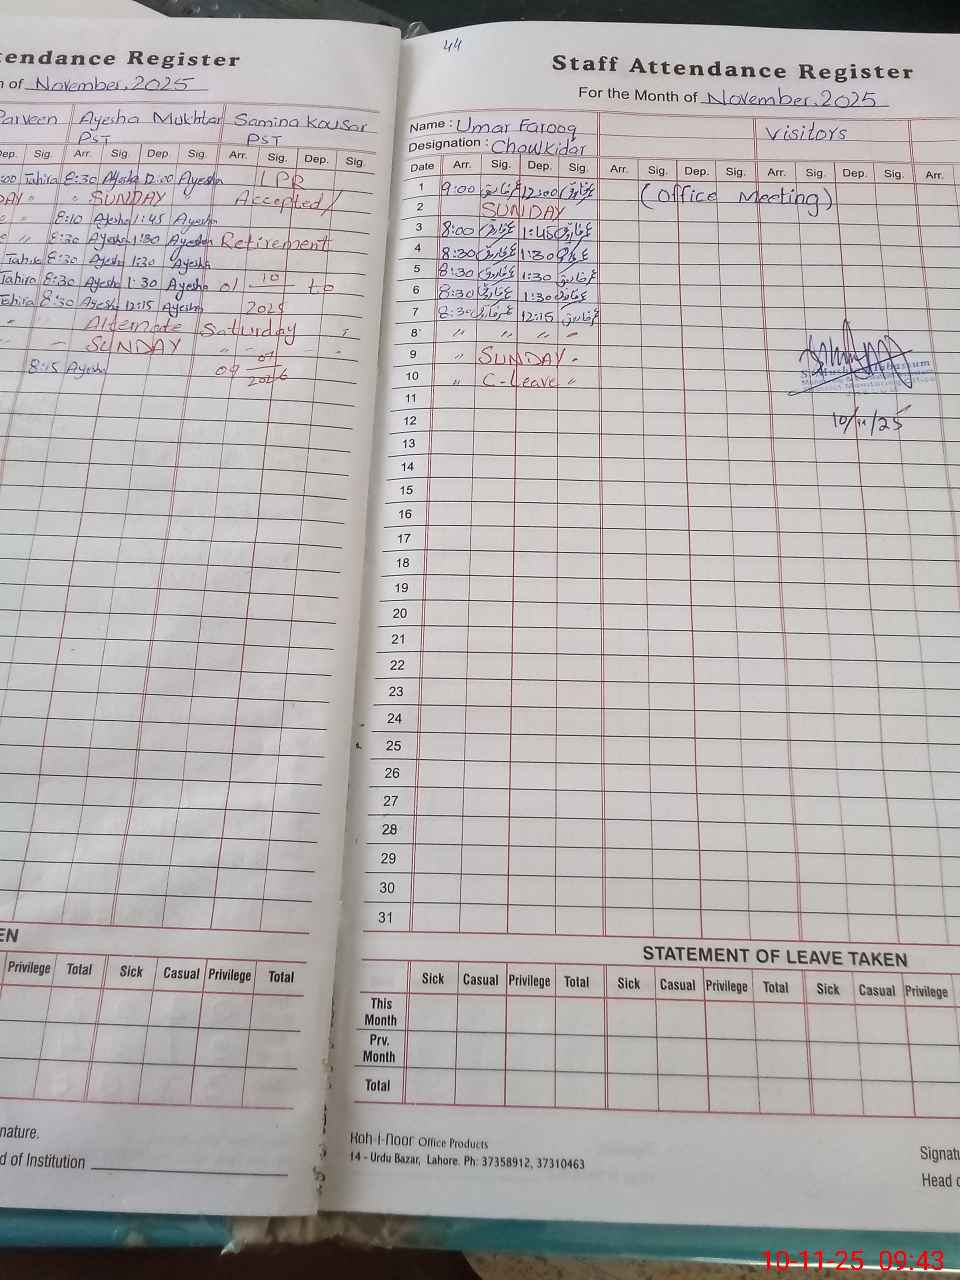 ttendance Register
h of November, 2025
Parveen Ayesha Mukhtar Samina Kousar
PST PST
Dep. Sig. Arr. Sig. Dep. Sig. Arr. Sig. Dep. Sig.
:00 Tahira 8:30 Ayesha 12:00 Ayesha LPR
DAY " " SUNDAY Accepted/
" 8:10 Ayesha 1:45 Ayesha
" 8:30 Ayesha 1:30 Ayesha Retirement
Tahira 8:30 Ayesha 1:30 Ayesha
Tahira 8:30 Ayesha 1:30 Ayesha 01 10 to
Tahira 8:30 Ayesha 12:15 Ayesha 2025
Alternate Saturday
SUNDAY 07
8:15 Ayesha 09 2026
EN
Privilege Total Sick Casual Privilege Total
nature.
d of Institution
44
Staff Attendance Register
For the Month of November, 2025
Name : Umar Farooq Visitors
Designation : Chowkidar
Date Arr. Sig. Dep. Sig. Arr. Sig. Dep. Sig. Arr. Sig. Dep. Sig. Arr.
1 9:00 عمر فاروق 12:00 عمر فاروق (Office Meeting)
2 SUNDAY
3 8:00 عمر فاروق 1:45 عمر فاروق
4 8:30 عمر فاروق 1:30 عمر فاروق
5 8:30 عمر فاروق 1:30 عمر فاروق
6 8:30 عمر فاروق 1:30 عمر فاروق
7 8:30 عمر فاروق 12:15 عمر فاروق
8 " " " "
9 " SUNDAY
10 " C-Leave "
11
12 10/11/25
13
14
15
16
17
18
19
20
21
22
23
24
25
26
27
28
29
30
31
STATEMENT OF LEAVE TAKEN
Sick Casual Privilege Total Sick Casual Privilege Total Sick Casual Privilege
This Month
Prv. Month
Total
Koh-i-Noor Office Products
14 - Urdu Bazar, Lahore. Ph: 37358912, 37310463
Signatu
Head o
10-11-25 09:43